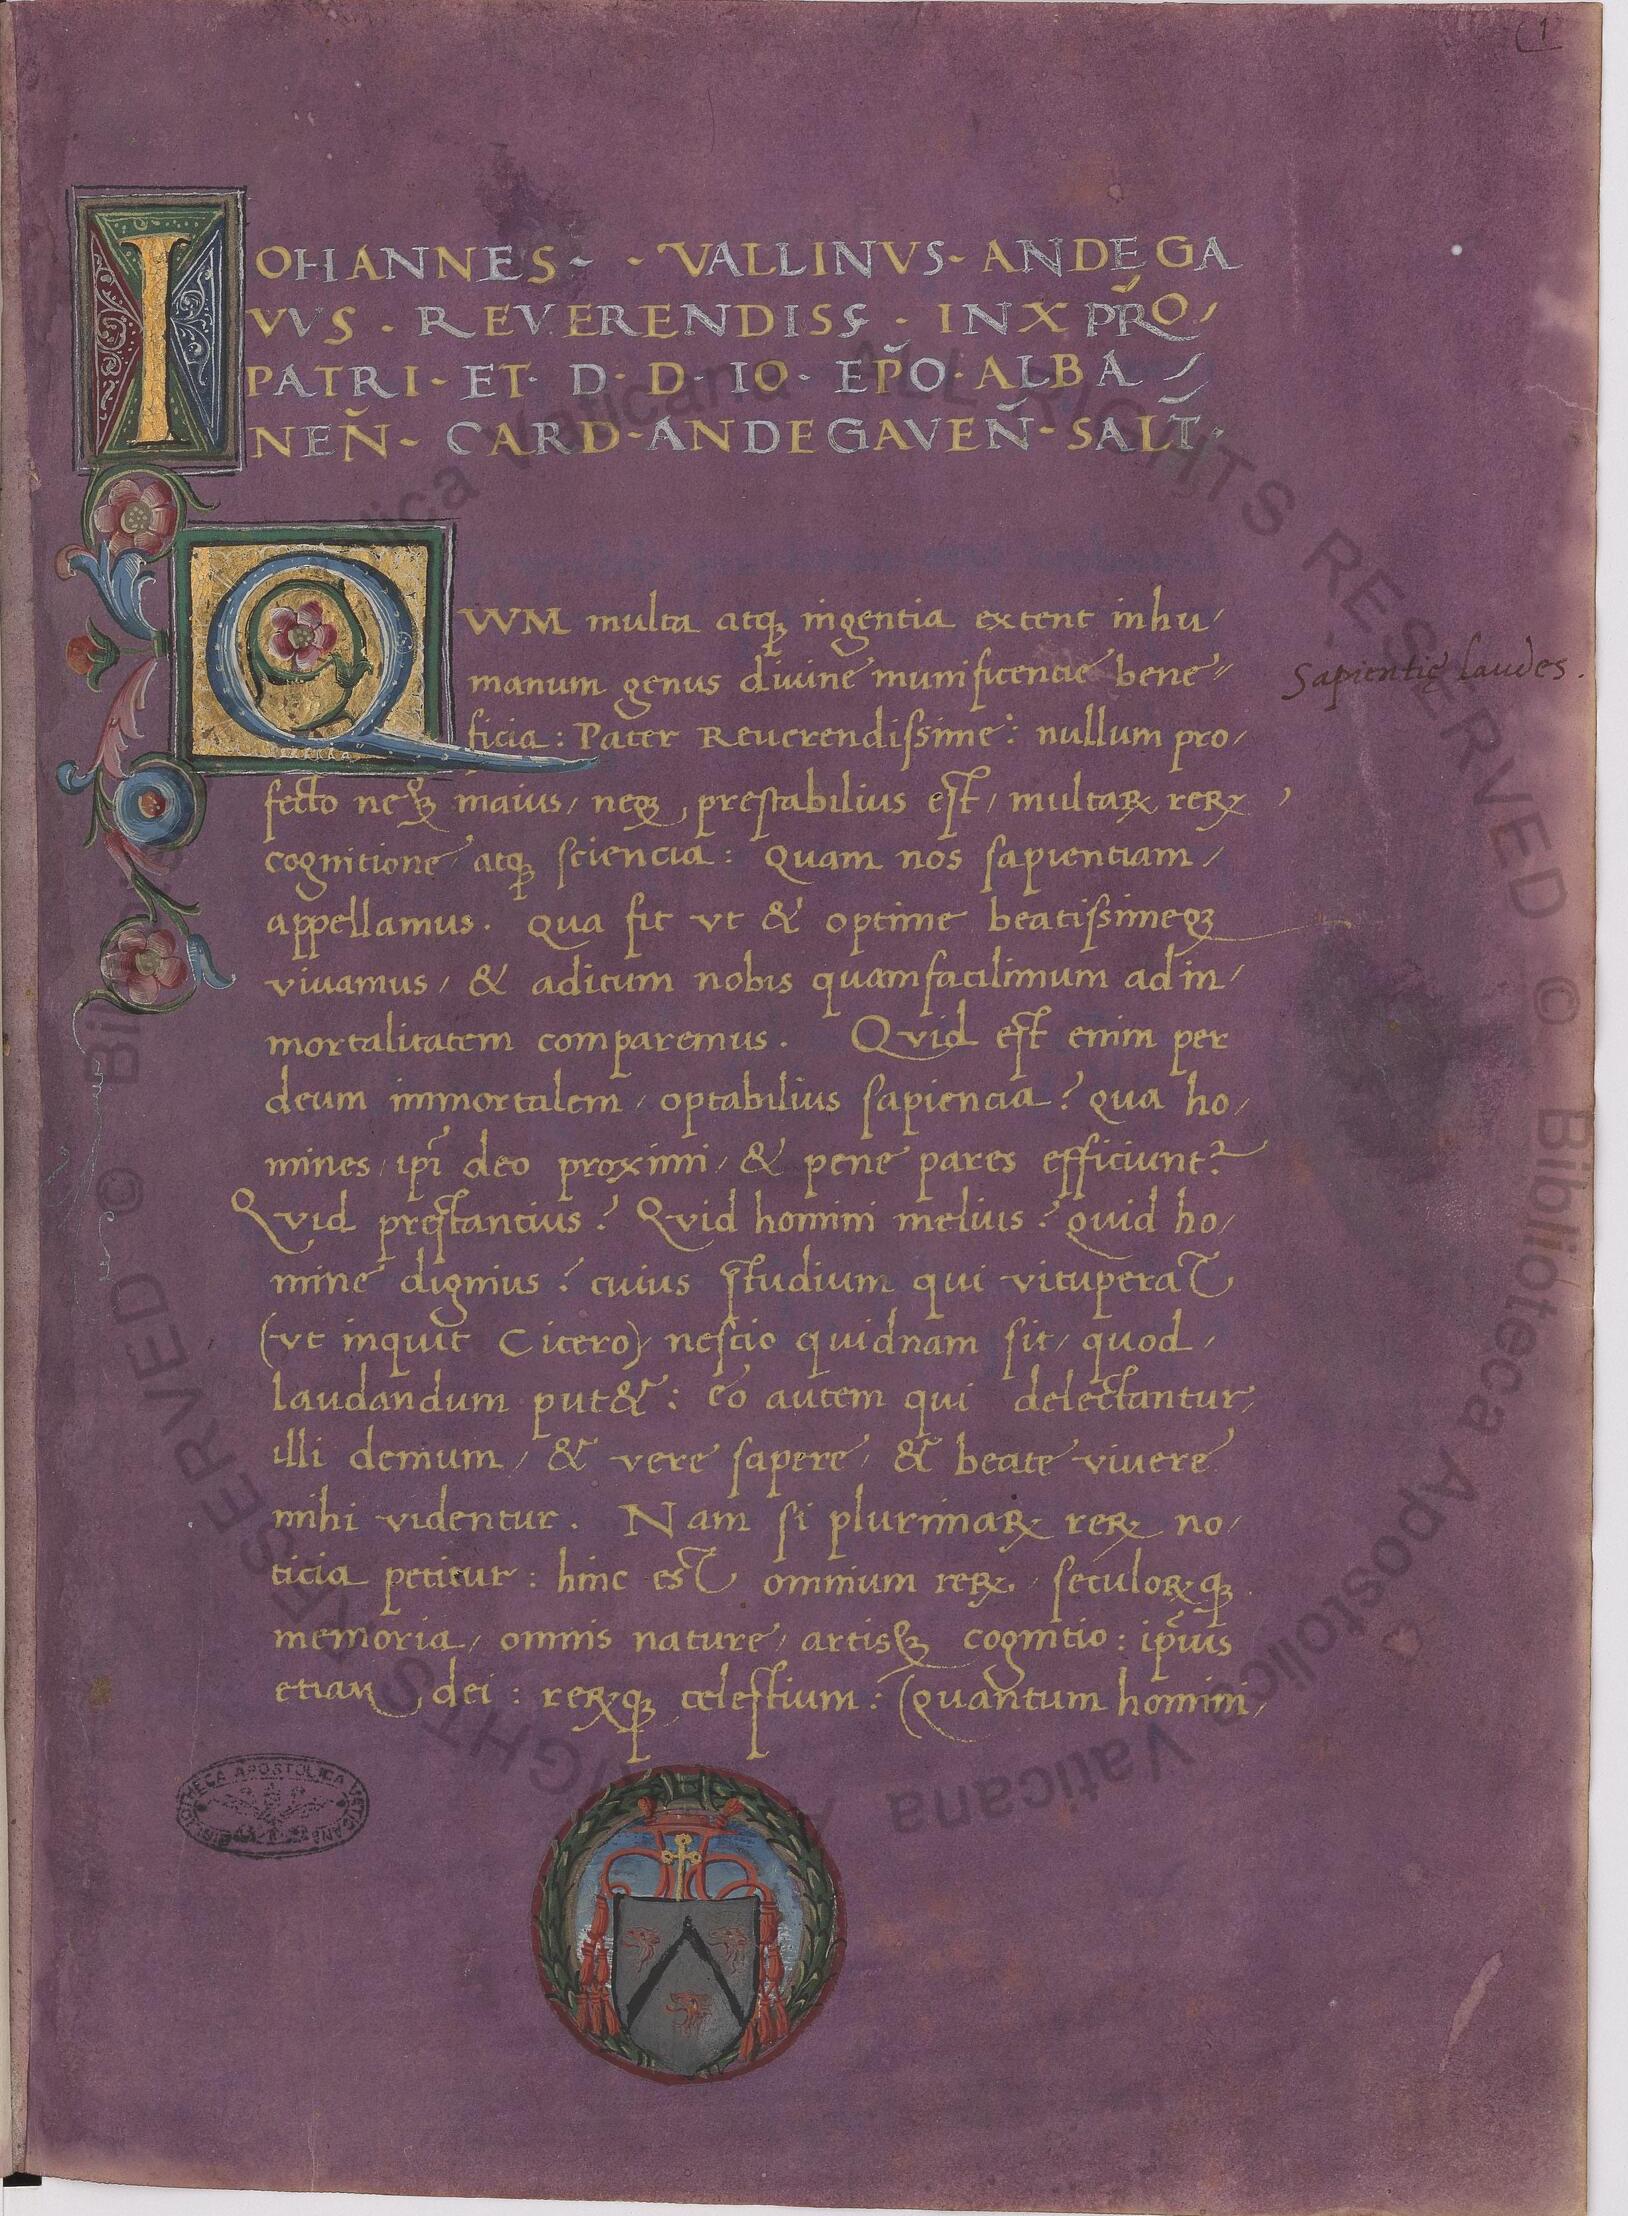 1
IOHANNES - - VALLINVS - ANDEGA
VVS - REVERENDISS - IN X P̃RO/
PATRI - ET - D - D - IO - EP̃O - ALBA /
NEÑ - CARD - ANDEGAVEÑ - SALT̃ -
QVVM multa atqꝫ ingentia extent in hu/
manum genus diuine munificencie bene//
Sapientię laudes.
ficia : Pater Reuerendissime : nullum pro/
fecto neqꝫ maius / neqꝫ prestabilius est / multaꝝ reꝝ
cognitione atqꝫ sciencia : Quam nos sapientiam /
appellamus . Qua fit vt & optime beatissimeqꝫ
viuamus / & aditum nobis quamfacilimum ad in/
mortalitatem comparemus . Qvid est enim per
deum immortalem / optabilius sapiencia ? qua ho/
mines ip̃i deo proximi / & pene pares efficiunt᷑ ?
Qvid pręstantius ? Qvid homini melius ? quid ho/
mine dignius ? cuius studium qui vituperat
(vt inquit Cicero) nescio quidnam sit / quod /
laudandum put& : eo autem qui delectantur /
illi demum / & vere sapere / & beate viuere
mihi videntur . Nam si plurimaꝝ reꝝ no/
ticia petitur : hinc est omnium reꝝ / seculoꝝqꝫ
memoria / omnis nature / artisqꝫ cognitio : ip̃ius
etiam dei : reꝝqꝫ celestium : (quantum homini /
BIBLIOTHECA APOSTOLICA VATICANA
© Biblioteca Apostolica Vaticana ALL RIGHTS RESERVED © Biblioteca Apostolica Vaticana ALL RIGHTS RESERVED